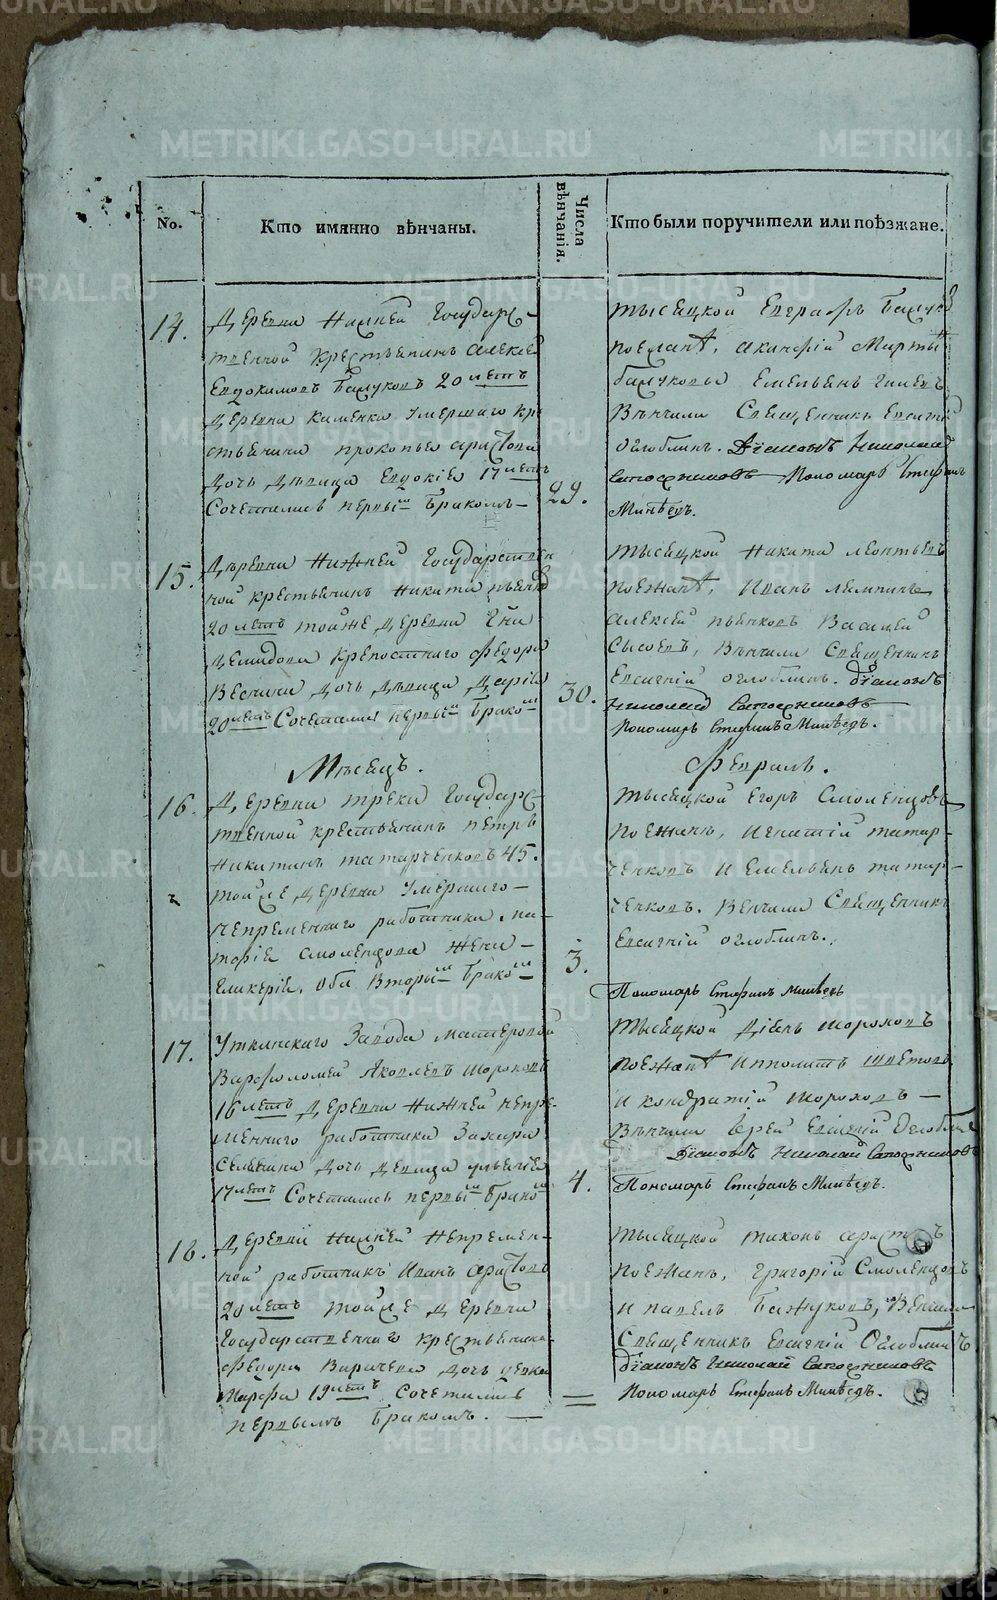 No.
Кто имянно вѣнчаны.
Числа вѣнчанія.
Кто были поручители или поѣзжане.
14.
Деревни Нижней Государс-
твенной крестьянинъ Алексей
Евдокимовъ Бажуковъ 20 летъ
Деревни Каменки умершаго кре
стьянина Прокопья Аристова
дочь девица Евдокiя 17 летъ
Сочетались первымъ бракомъ
29.
Тысяцкой Евграфъ Бажуко
Поезжанѣ, Акинфiй Марты
Бажуковы Емельянъ
Вѣнчали Священникъ Евсигнiй
Оглоблинъ. Дiаконъ Николай
Сапожниковъ Пономарь Стефанъ
15.
Деревни Нижней Государствен
ной крестьянинъ Никита Пьянко
20 летъ тойже деревни Г-на
Демидова крепостнаго Федора
дочь девица Дарiя
20 летъ Сочетались первымъ бракомъ
30.
Тысяцкой Никита Леонтьевъ
Поезжанѣ, Иванъ
Алексей Пьянковъ Василей
Сысоевъ, Вѣнчали Священникъ
Евсигнiй Оглоблинъ. Дiаконъ
Николай Сапожниковъ
Пономарь Стефанъ
Мѣсяцъ. Февраль.
16.
Деревни Треки Государс-
твенной крестьянинъ Петръ
Никитинъ Татарченковъ 45.
тойже деревни умершаго
непременнаго работника
Смоленцова жена
Гликерiя. Оба вторымъ бракомъ
3.
Тысяцкой Егоръ Смоленцовъ
Поезжанѣ, Игнатiй Татар-
ченковъ и Емельянъ Татар-
ченковъ. Венчали Священникъ
Евсигнiй Оглоблинъ.
Пономарь Стефанъ
17.
Уткинскаго Завода мастеровой
Варфоломей Яковлевъ Шороховъ
16 летъ Деревни Нижней непре-
меннаго работника Захара
дочь девица
17 летъ Сочетались первымъ бракомъ
4.
Тысяцкой Шороховъ
Поезжанѣ Ипполитъ Шветовъ
и Кондратiй Шороховъ
Вѣнчали Iерей Евсигнiй Оглоблинъ
Дiаконъ Николай Сапожниковъ
Пономарь Стефанъ
18.
Деревни Нижней Непремен-
ной работникъ Иванъ Аристовъ
20 летъ тойже деревни
Государственнаго крестьянина
Федора дочь девка
Марфа 19 летъ Сочетались
первымъ бракомъ.
Тысяцкой Тихонъ Аристовъ
Поезжанѣ, Григорiй Смоленцовъ
и Павелъ Бажуковъ, Венчали
Священникъ Евсигнiй Оглоблинъ
Дiаконъ Николай Сапожниковъ
Пономарь Стефанъ
METRIKI.GASO-URAL.RU